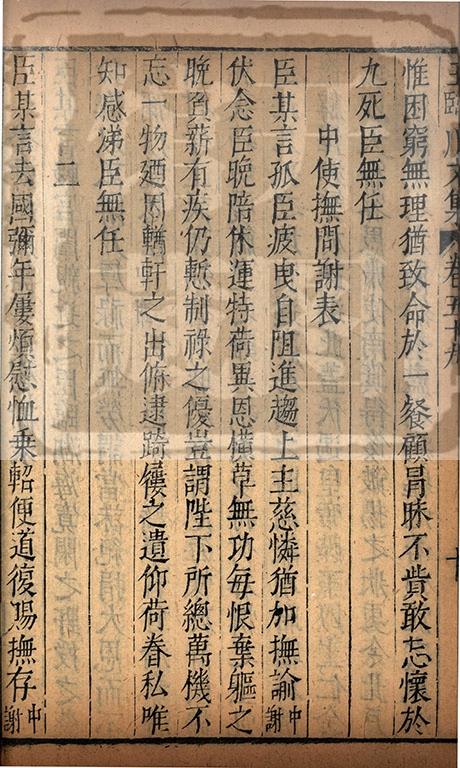 王臨川文集 卷五十九 十
惟困窮無理猶致命於一餐顧冐昧不貲敢忘懷於
九死臣無任
中使撫問謝表
臣某言孤臣疲曳自阻進趨上主慈憐猶加撫諭中謝
伏念臣晚陪休運特荷異恩橫草無功每恨棄軀之
晚負薪有疾仍慙制祿之優豈謂陛下所總萬機不
忘一物廼因輶軒之出俯逮踦屨之遺仰荷眷私唯
知感涕臣無任
二
臣某言去國彌年屢煩慰恤乗軺便道復賜撫存中謝